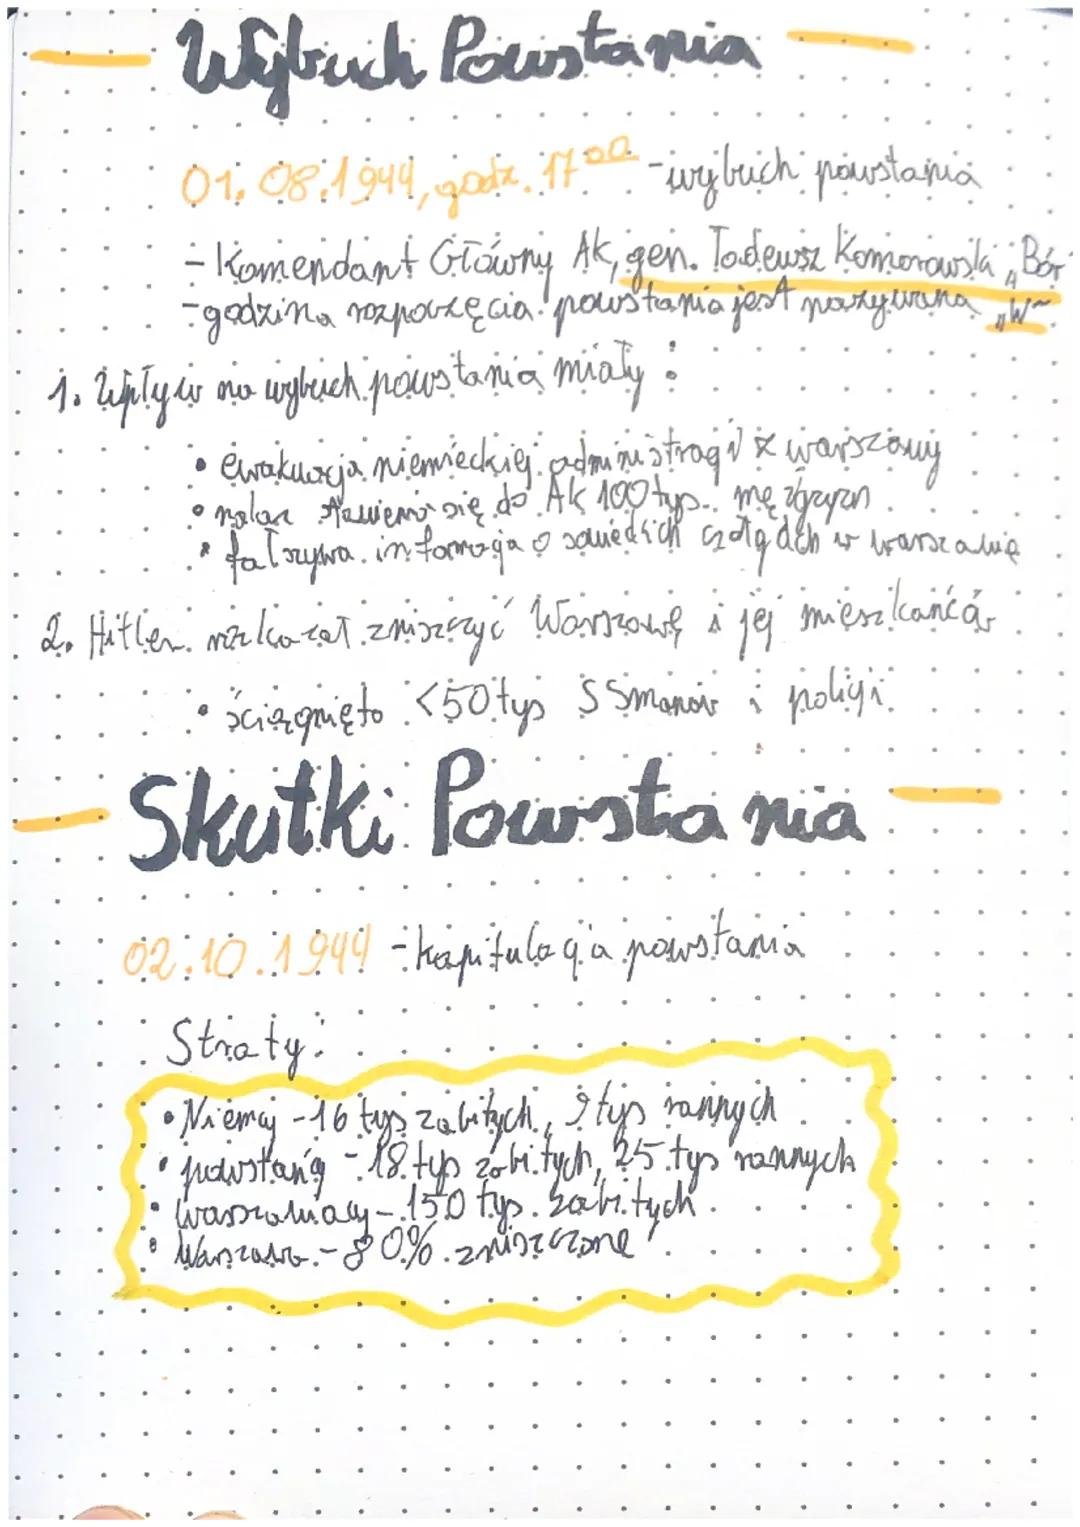 Wybuch Powstania
01.08.1944, godz. 17⁰⁰ - wybuch powstania
- Komendant Główny AK, gen. Tadeusz Komorowski „Bór"
- godzina rozpoczęcia powstania jest nazywana „W"
1. Wpływ na wybuch powstania miały:
• ewakuacja niemieckiej administracji z warszawy
• nakaz stawienia się do AK 100 tys. mężczyzn
• fałszywa informacja o sowieckich czołgach w warszawie
2. Hitler rozkazał zniszczyć Warszawę i jej mieszkańców
• ściągnięto <50 tys SSmanów i policji
Skutki Powstania
02.10.1944 - kapitulacja powstania
Straty:
• Niemcy - 16 tys zabitych, 9 tys rannych
• powstańcy - 18 tys zabitych, 25 tys rannych
• warszawiacy - 150 tys. zabitych
• Warszawa - 80% zniszczone